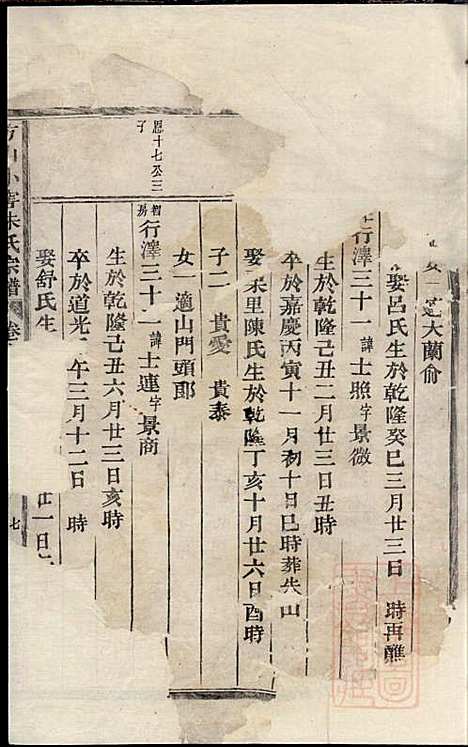 大蘭俞
娶呂氏生於乾隆癸巳三月廿三日 時再醮
行澤三十一 諱士照字景微
生於乾隆己丑二月廿三日丑時
卒於嘉慶丙寅十一月初十日巳時葬失山
娶 里陳氏生於乾隆丁亥十月廿六日酉時
子二 貴愛 貴泰
女一 適山門頭郎
恩十七公三子
行澤三十二 諱士連字景商
生於乾隆己丑六月廿三日亥時
卒於道光 午三月十二日 時
娶舒氏生 廿一日
朱氏宗譜 卷
七